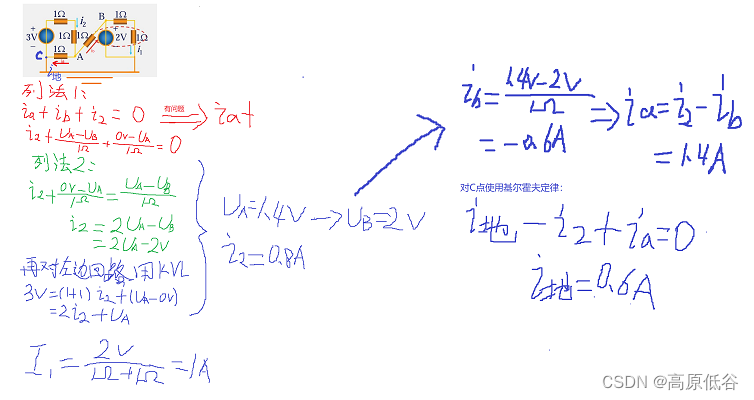 1Ω 1Ω
i₂ B
3V 1Ω 1Ω 2V 1Ω
C 1Ω A i₁
i地
列法1:
ia+ib+i₂=0 有问题 ia+
i₂+(UA-UB)/1Ω+(0V-UA)/1Ω=0
列法2:
i₂+(0V-UA)/1Ω=(UA-UB)/1Ω
i₂=2UA-UB
=2UA-2V
再对左边回路用KVL
3V=(1+1)i₂+(UA-0V)
=2i₂+UA
I₁=2V/(1Ω+1Ω)=1A
UA=1.4V→UB=2V
i₂=0.8A
ib=(1.4V-2V)/1Ω ⇒ ia=i₂-ib
=-0.6A =1.4A
对C点使用基尔霍夫定律:
i地-i₂+ia=0
i地=0.6A
CSDN @高原低谷